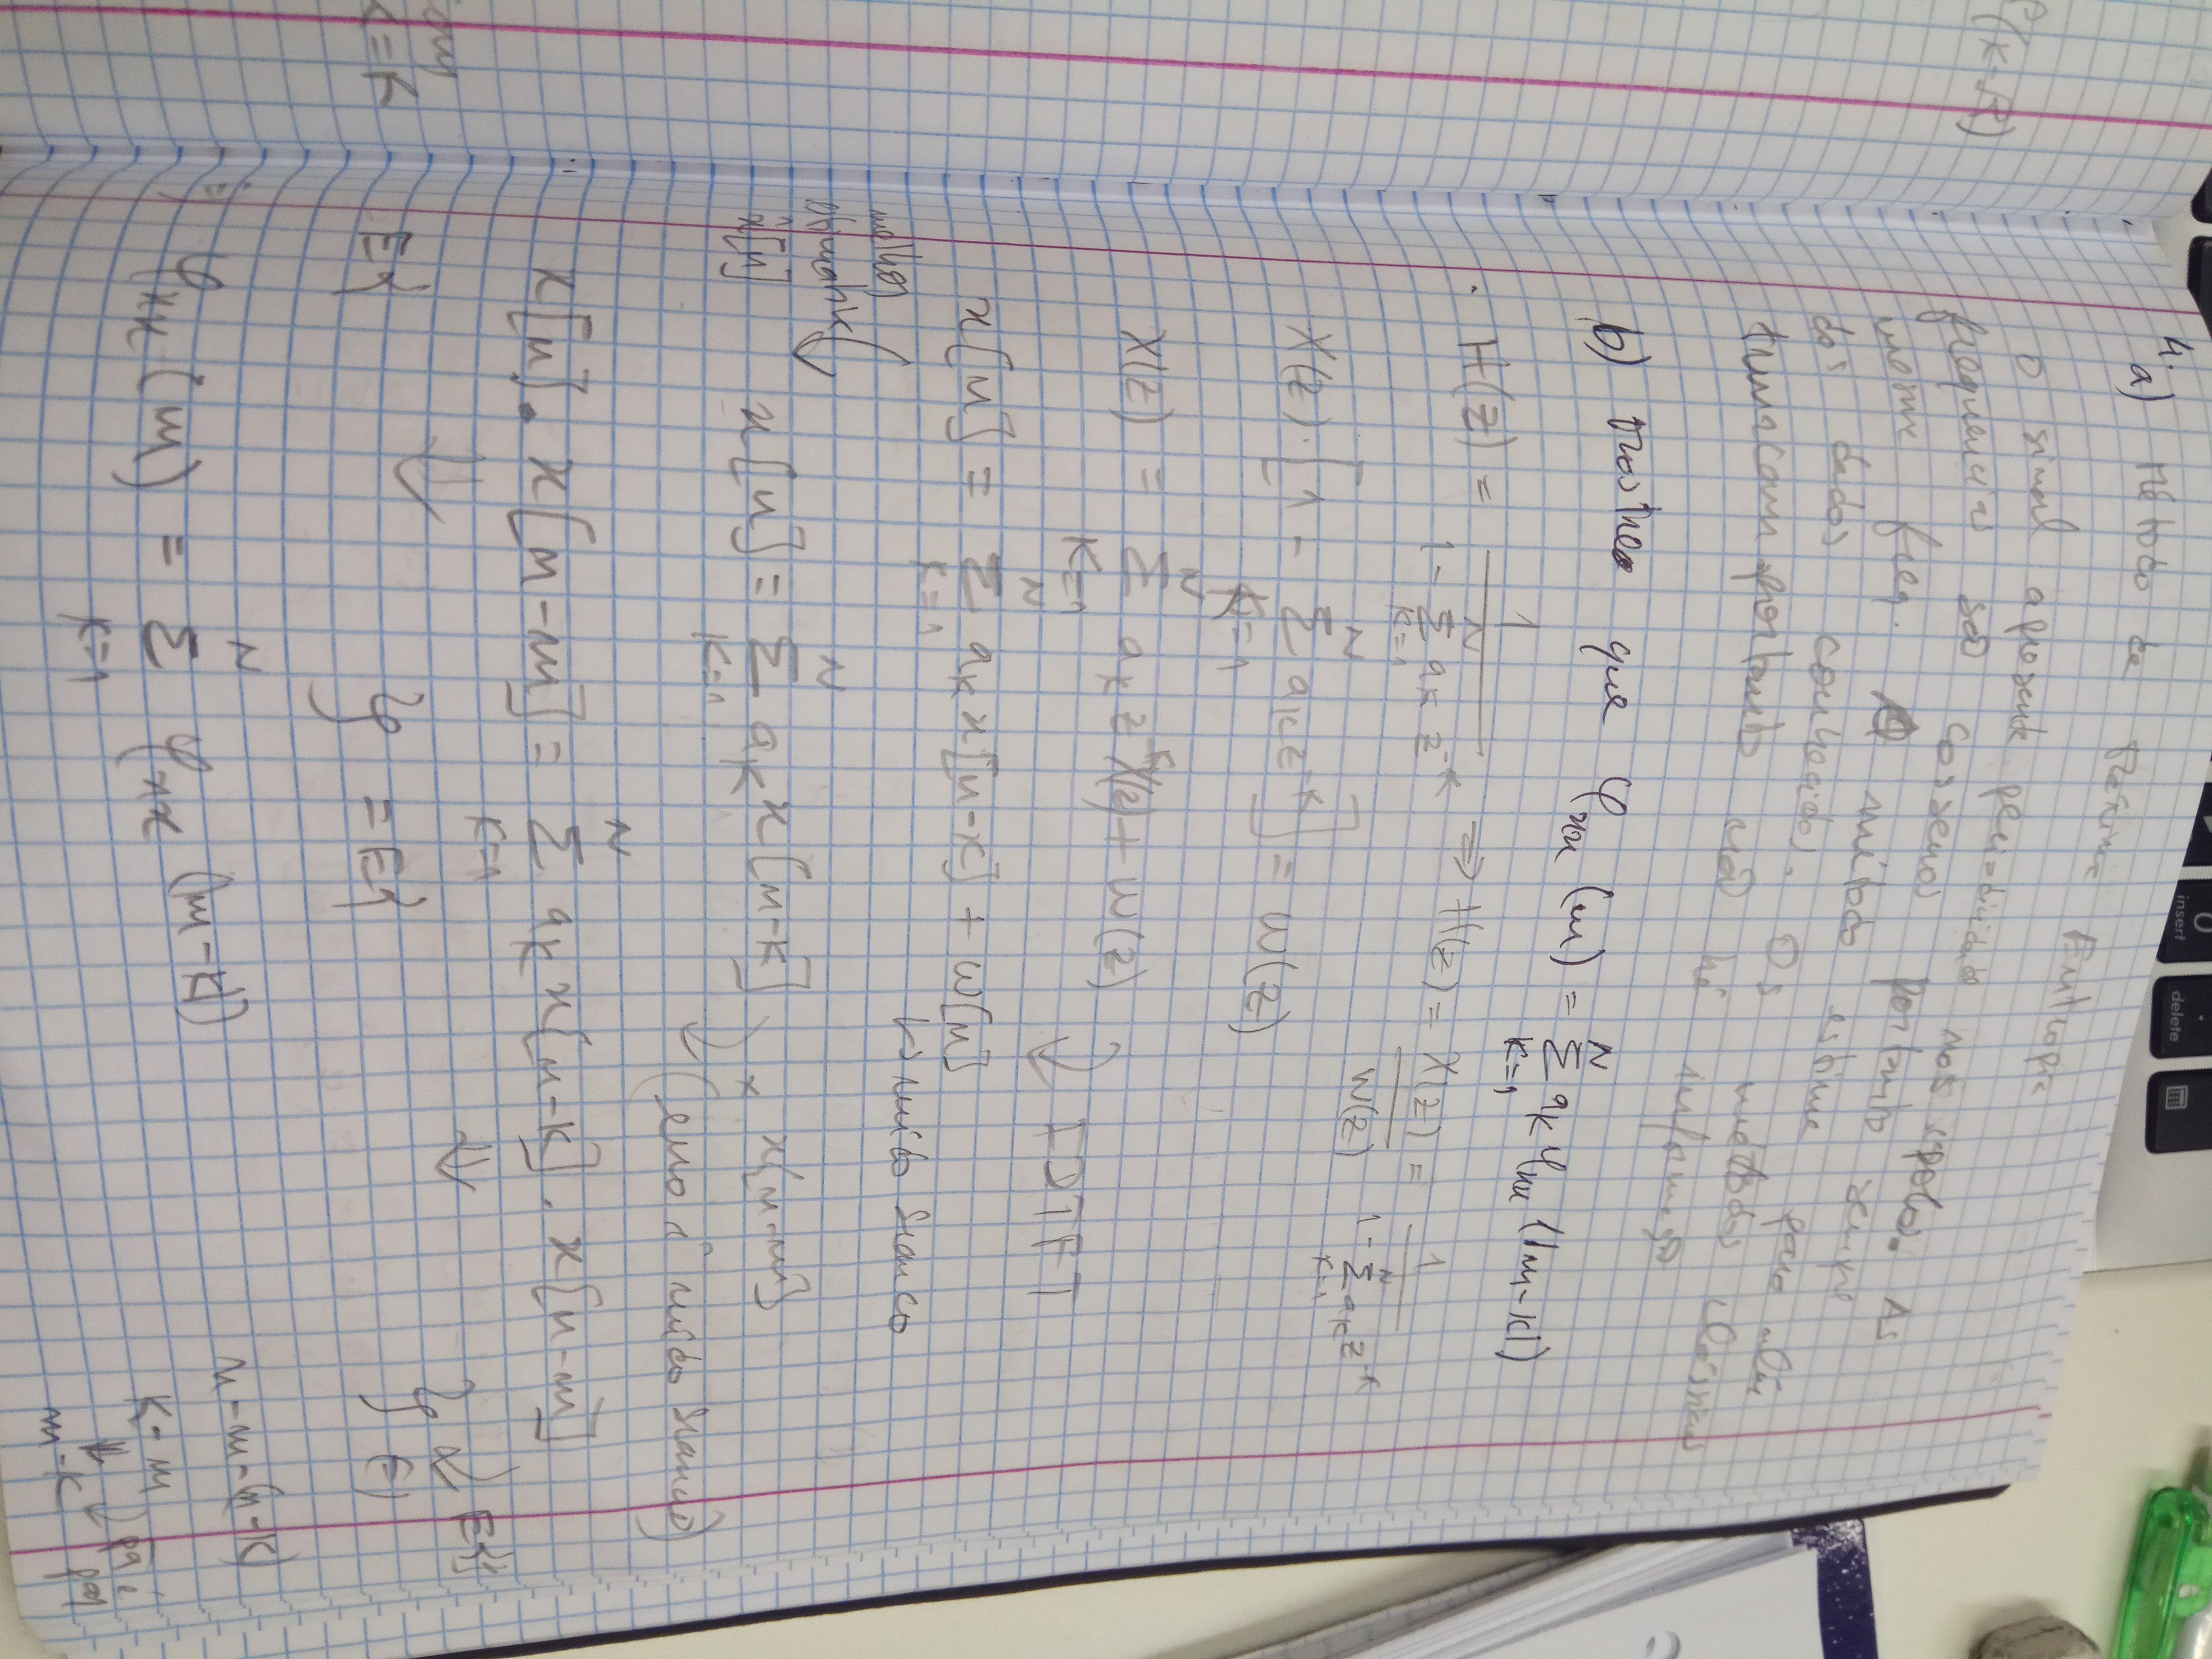 0
insert
.
delete
4.
a) Método de Máxima Entropia
O sinal apresenta periodicidade nos
frequencias são cossenos portanto sempre
mesma freq. O método estima para além
dos dados conhecidos. Os métodos clássicos
truncam portanto não há informação
. As
b) Mostre que φxx (m) = Σ_{K=1}^{N} aK φxx (|m-K|)
. H(z) = 1 / (1 - Σ_{K=1}^{N} aK z^{-K}) => H(z) = X(z)/W(z) = 1 / (1 - Σ_{K=1}^{N} aK z^{-K})
X(z) . [1 - Σ_{K=1}^{N} aK z^{-K}] = W(z)
X(z) = Σ_{K=1}^{N} aK z^{-K} X(z) + W(z)
IDTFT
x[n] = Σ_{K=1}^{N} aK x[n-K] + w[n]
↳ ruido branco
melhor
x̂[n]
x[n] = Σ_{K=1}^{N} aK x[n-K] × x[n-m]
(erro é ruido branco)
x[n] . x[n-m] = Σ_{K=1}^{N} aK x[n-K] . x[n-m]
E{}
E{ } = E{ }
φxx (m) = Σ_{K=1}^{N} φxx (|m-K|)
n-m-(n-K)
K-m
m-K
par
(K-
=K